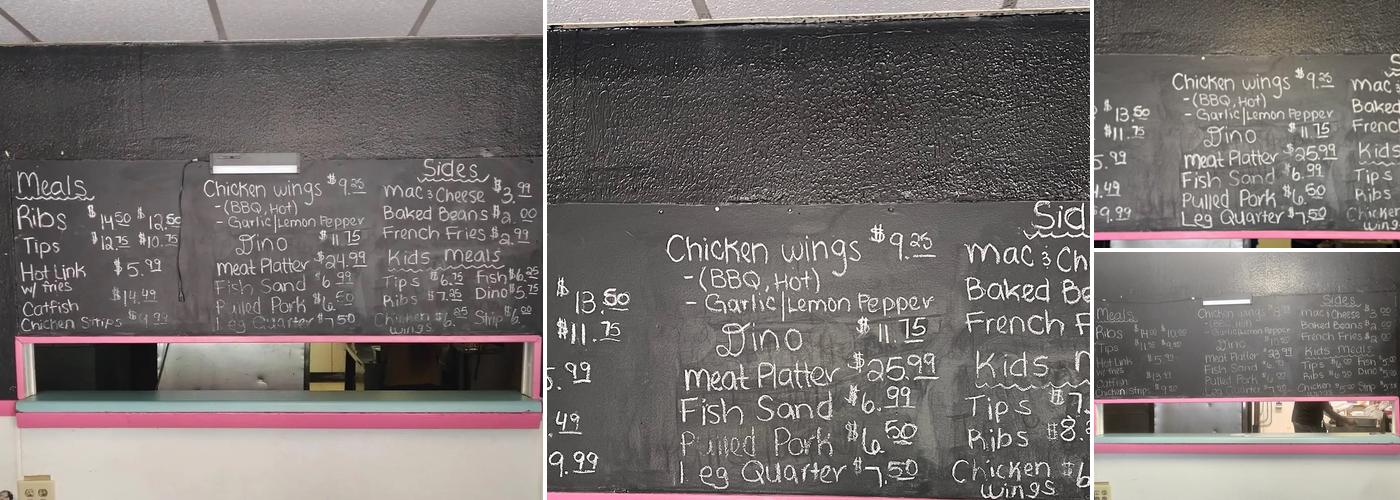 Meals
Ribs $14.50 $12.50
Tips $12.75 $10.75
Hot Link $5.99
w/ fries
Catfish $14.49
Chicken Strips $9.99
Chicken wings $9.25
-(BBQ, Hot)
- Garlic/Lemon Pepper
Dino $11.75
meat Platter $24.99
Fish Sand $6.99
Pulled Pork $6.50
Leg Quarter $7.50
Sides
mac & Cheese $3.99
Baked Beans $2.00
French Fries $2.99
Kids meals
Tips $6.75 Fish $6.25
Ribs $7.25 Dino $5.75
Chicken $6.25 Strip $6.00
wings
$13.50
$11.75
5.99
.49
9.99
Chicken wings $9.25
-(BBQ, Hot)
- Garlic/Lemon Pepper
Dino $11.75
meat Platter $25.99
Fish Sand $6.99
Pulled Pork $6.50
Leg Quarter $7.50
Sid
mac & Ch
Baked Be
French F
Kids m
Tips $7.
Ribs $8.
Chicken $6
wings
$13.50
$11.75
5.99
4.49
$9.99
Chicken wings $9.25
-(BBQ, Hot)
- Garlic/Lemon Pepper
Dino $11.75
meat Platter $25.99
Fish Sand $6.99
Pulled Pork $6.50
Leg Quarter $7.50
S
mac &
Baked
French
Kids
Tips
Ribs
Chicken
wings
Meals
Ribs
Tips
Hot Link $5.99
w/ fries
Catfish
Chicken Strips
Chicken wings
-(BBQ, Hot)
- Garlic/Lemon Pepper
Dino
meat Platter $23.99
Fish Sand
Pulled Pork
Leg Quarter
Sides
mac & Cheese
Baked Beans
French Fries
Kids meals
Tips Fish
Ribs Dino
Chicken Strip
wings